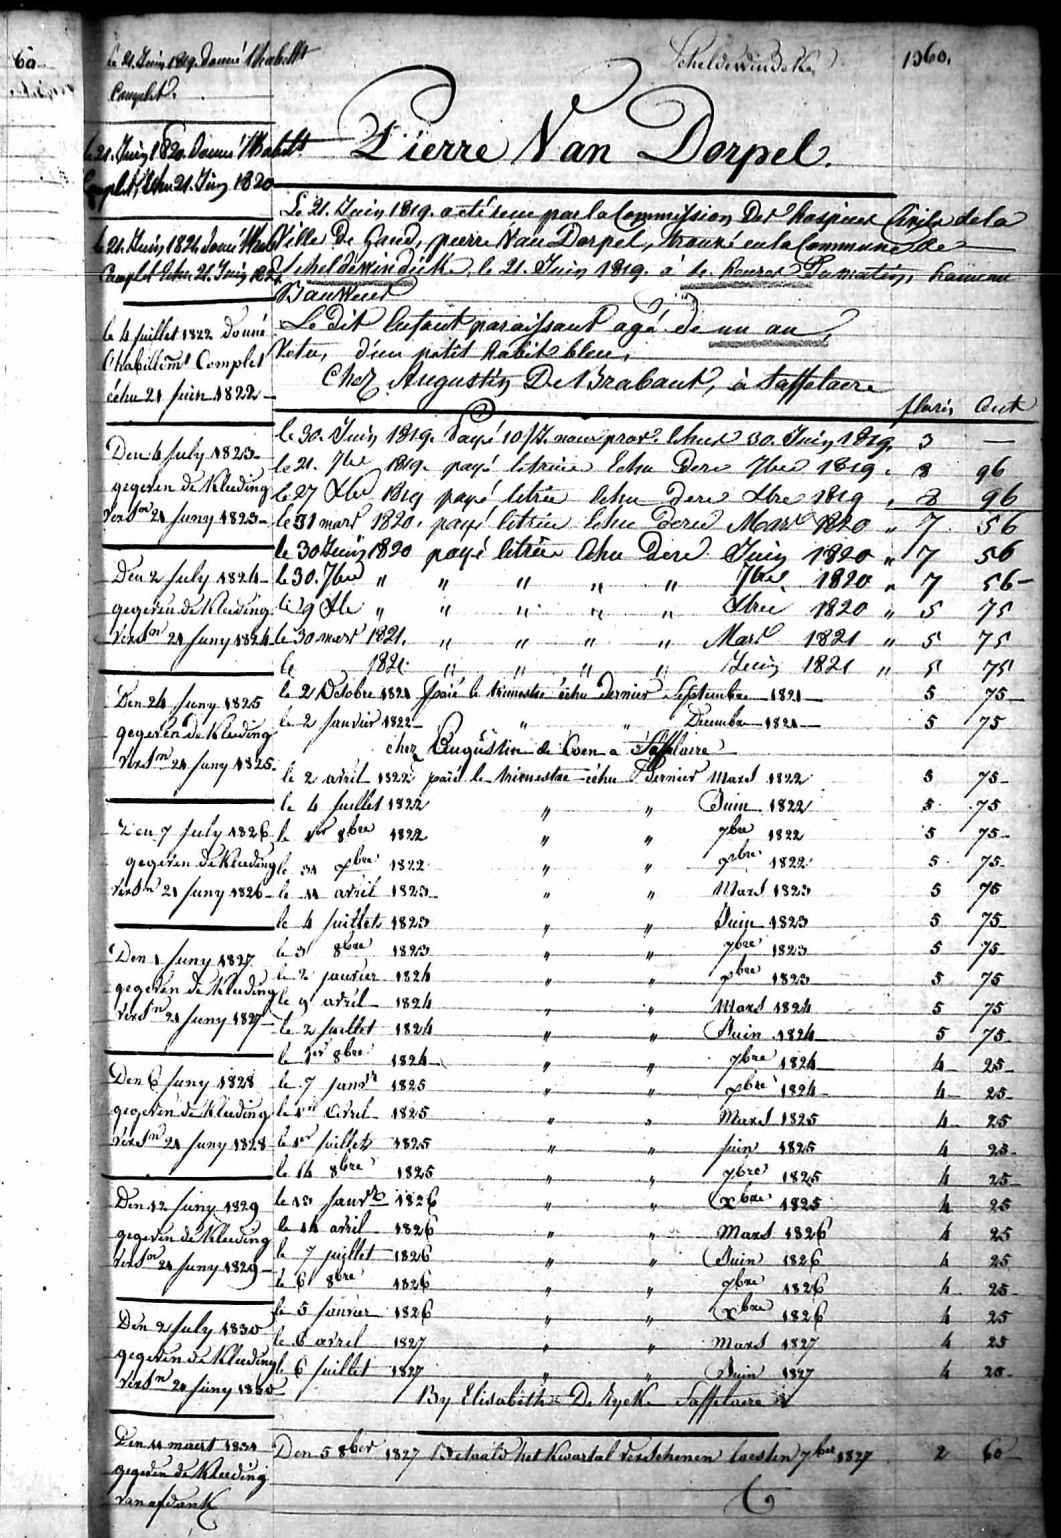 60
Scheldewindeke
1360.
Pierre Van Dorpel.
Le 21. Juin 1819. a été reçu par la Commission Des hospices Civils de la
Ville De Gand, pierre Van Dorpel, trouvé en la Commune de
Scheldewindeke, le 21. Juin 1819. à heures Du matin, hameau
Le dit Enfant paraissant agé de un an
Vetu, d'un petit habit bleu,
Chez Augustin De Brabant, à Saffelaere
florin Cent
le 30. Juin 1819. Payé 10 Echus 30. Juin 1819. 3 —
le 21. 7bre 1819. payé letrim Echu Dere 7bre 1819. 2 96
le 27 Xbre 1819 payé letrim Echu dere Xbre 1819 " 2 96
le 31 mars 1820. payé letrim Echu dere Mars 1820 " 7 56
le 30 Juin 1820 payé letrim Echu Dere Juin 1820 " 7 56
le 30. 7bre " " " " " 7bre 1820 " 7 56
le 9 Xbre " " " " " Xbre 1820 " 5 75
le 30 mars 1821. " " " " Mars 1821 " 5 75
le 1821. " " " " Juin 1821 " 5 75
le 2 Octobre 1821 paié le trimestre échu dernier Septembre 1821 5 75
le 2 Janvier 1822 " " Decembre 1821 5 75
chez Augustin de Coen a Saffelaere
le 2 avril 1822 paié le trimestre échu Dernier Mars 1822 5 75
le 4 Juillet 1822 " " Juin 1822 5 75
le 1er 8bre 1822 " " 7bre 1822 5 75
le 31 xbre 1822 " " xbre 1822 5 75
le 11 avril 1823 " " Mars 1823 5 75
le 4 Juillet 1823 " " Juin 1823 5 75
le 3 8bre 1823 " " 7bre 1823 5 75
le 2 janvier 1824 " " xbre 1823 5 75
le 9 avril 1824 " " Mars 1824 5 75
le 2 juillet 1824 " " Juin 1824 5 75
le 1er 8bre 1824 " " 7bre 1824 4 25
le 7 janvr 1825 " " xbre 1824 4 25
le 1er Avril 1825 " " Mars 1825 4 25
le 1er juillet 1825 " " juin 1825 4 25
le 14 8bre 1825 " " 7bre 1825 4 25
le 13 janvr 1826 " " Xbre 1825 4 25
le 14 avril 1826 " " Mars 1826 4 25
le 7 juillet 1826 " " Juin 1826 4 25
le 6 8bre 1826 " " 7bre 1826 4 25
le 5 janvier 1826 " " Xbre 1826 4 25
le 6 avril 1827 " " Mars 1827 4 25
le 6 juillet 1827 " " Juin 1827 4 25
By Elisabeth De Rycke Saffelaere
Den 5 8ber 1827 Betaald het Kwartal verschenen laesten 7ber 1827 2 60
le 21. Juin 1819. donné l'habillt
Complet.
le 21. Juin 1820. Donné l'habillt
Complet, Echu 21. Juin 1820
le 21. Juin 1821 donné l'habil
Complet Echu 21. Juin 1821
le 4 juillet 1822 Donné
l'habillemt Complet
échu 21 juin 1822
Den 4 July 1823
gegeven de Kleeding
versn 21 juny 1823
Den 2 July 1824
gegeven de Kleeding
versn 21 juny 1824
Den 24 juny 1825
gegeven de Kleeding
versn 21 juny 1825
Den 7 July 1826
gegeven de Kleeding
versn 21 juny 1826
Den 1 juny 1827
gegeven de Kleeding
versn 21 juny 1827
Den 6 juny 1828
gegeven de Kleeding
versn 21 juny 1828
Den 12 juny 1829
gegeven de Kleeding
versn 21 juny 1829
Den 2 july 1830
gegeven de Kleeding
versn 21 juny 1830
Den 11 maert 1831
gegeven de Kleeding
van afdank